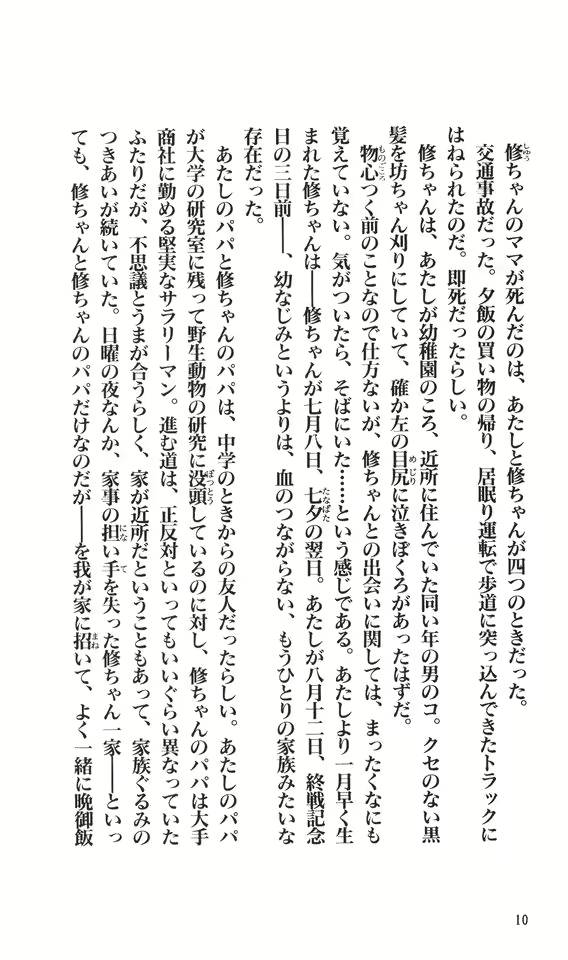 修ちゃんのママが死んだのは、あたしと修ちゃんが四つのときだった。
交通事故だった。夕飯の買い物の帰り、居眠り運転で歩道に突っ込んできたトラックに
はねられたのだ。即死だったらしい。
修ちゃんは、あたしが幼稚園のころ、近所に住んでいた同い年の男のコ。クセのない黒
髪を坊ちゃん刈りにしていて、確か左の目尻に泣きぼくろがあったはずだ。
物心つく前のことなので仕方ないが、修ちゃんとの出会いに関しては、まったくなにも
覚えていない。気がついたら、そばにいた……という感じである。あたしより一月早く生
まれた修ちゃんは――修ちゃんが七月八日、七夕の翌日。あたしが八月十二日、終戦記念
日の三日前――、幼なじみというよりは、血のつながらない、もうひとりの家族みたいな
存在だった。
あたしのパパと修ちゃんのパパは、中学のときからの友人だったらしい。あたしのパパ
が大学の研究室に残って野生動物の研究に没頭しているのに対し、修ちゃんのパパは大手
商社に勤める堅実なサラリーマン。進む道は、正反対といってもいいぐらい異なっていた
ふたりだが、不思議とうまが合うらしく、家が近所だということもあって、家族ぐるみの
つきあいが続いていた。日曜の夜なんか、家事の担い手を失った修ちゃん一家――といっ
ても、修ちゃんと修ちゃんのパパだけなのだが――を我が家に招いて、よく一緒に晩御飯
10